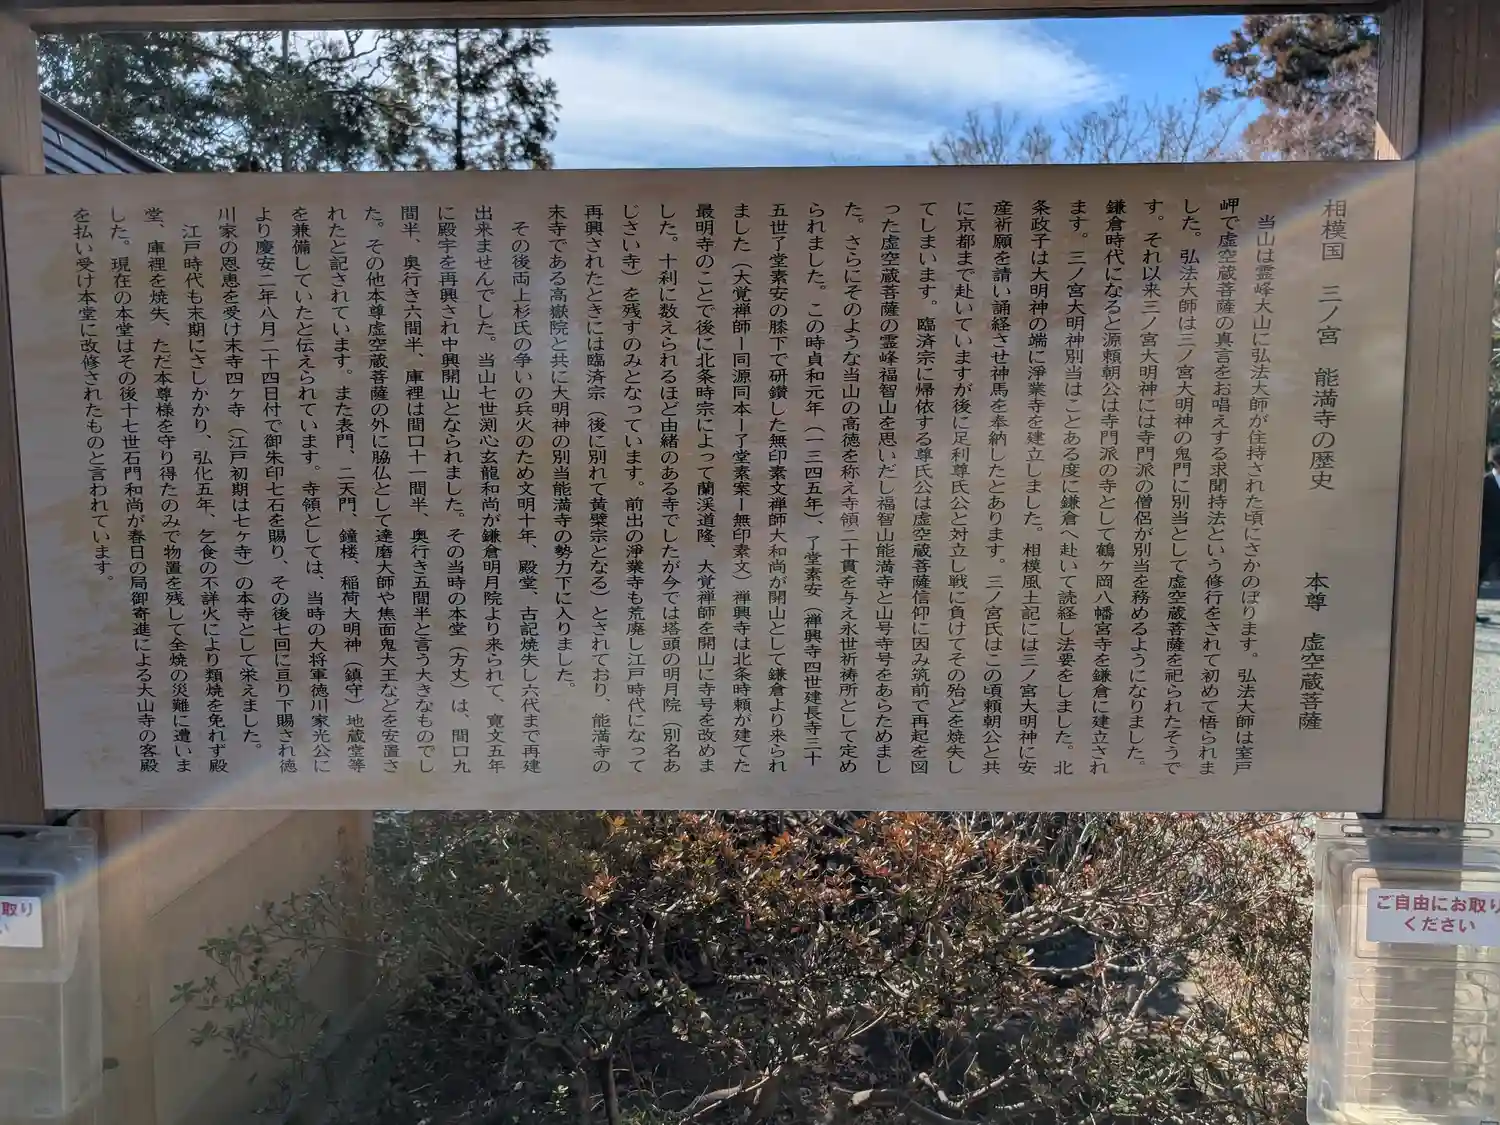 相模国　三ノ宮　能満寺の歴史　　本尊　虚空蔵菩薩
当山は霊峰大山に弘法大師が住持された頃にさかのぼります。弘法大師は室戸
岬で虚空蔵菩薩の真言をお唱えする求聞持法という修行をされて初めて悟られま
した。弘法大師は三ノ宮大明神の鬼門に別当として虚空蔵菩薩を祀られたそうで
す。それ以来三ノ宮大明神には寺門派の僧侶が別当を務めるようになりました。
鎌倉時代になると源頼朝公は寺門派の寺として鶴ヶ岡八幡宮寺を鎌倉に建立され
ます。三ノ宮大明神別当はことある度に鎌倉へ赴いて読経し法要をしました。北
条政子は大明神の端に浄業寺を建立しました。相模風土記には三ノ宮大明神に安
産祈願を請い誦経させ神馬を奉納したとあります。三ノ宮氏はこの頃頼朝公と共
に京都まで赴いていますが後に足利尊氏公と対立し戦に負けてその殆どを焼失し
てしまいます。臨済宗に帰依する尊氏公は虚空蔵菩薩信仰に因み筑前で再起を図
った虚空蔵菩薩の霊峰福智山を思いだし福智山能満寺と山号寺号をあらためまし
た。さらにそのような当山の高徳を称え寺領二十貫を与え永世祈祷所として定め
られました。この時貞和元年（一三四五年）、了堂素安（禅興寺四世建長寺三十
五世了堂素安の膝下で研鑽した無印素文禅師大和尚が開山として鎌倉より来られ
ました（大覚禅師ー同源同本ー了堂素案ー無印素文）禅興寺は北条時頼が建てた
最明寺のことで後に北条時宗によって蘭渓道隆、大覚禅師を開山に寺号を改めま
した。十利に数えられるほど由緒のある寺でしたが今では塔頭の明月院（別名あ
じさい寺）を残すのみとなっています。前出の浄業寺も荒廃し江戸時代になって
再興されたときには臨済宗（後に別れて黄檗宗となる）とされており、能満寺の
末寺である高嶽院と共に大明神の別当能満寺の勢力下に入りました。
その後両上杉氏の争いの兵火のため文明十年、殿堂、古記焼失し六代まで再建
出来ませんでした。当山七世渕心玄龍和尚が鎌倉明月院より来られて、寛文五年
に殿宇を再興され中興開山となられました。その当時の本堂（方丈）は、間口九
間半、奥行き六間半、庫裡は間口十一間半、奥行き五間半と言う大きなものでし
た。その他本尊虚空蔵菩薩の外に脇仏として達磨大師や焦面鬼大王などを安置さ
れたと記されています。また表門、二天門、鐘楼、稲荷大明神（鎮守）地蔵堂等
を兼備していたと伝えられています。寺領としては、当時の大将軍徳川家光公に
より慶安二年八月二十四日付で御朱印七石を賜り、その後七回に亘り下賜され徳
川家の恩恵を受け末寺四ヶ寺（江戸初期は七ヶ寺）の本寺として栄えました。
江戸時代も末期にさしかかり、弘化五年、乞食の不詳火により類焼を免れず殿
堂、庫裡を焼失、ただ本尊様を守り得たのみで物置を残して全焼の災難に遭いま
した。現在の本堂はその後十七世石門和尚が春日の局御寄進による大山寺の客殿
を払い受け本堂に改修されたものと言われています。
取り
い
ご自由にお取り
ください